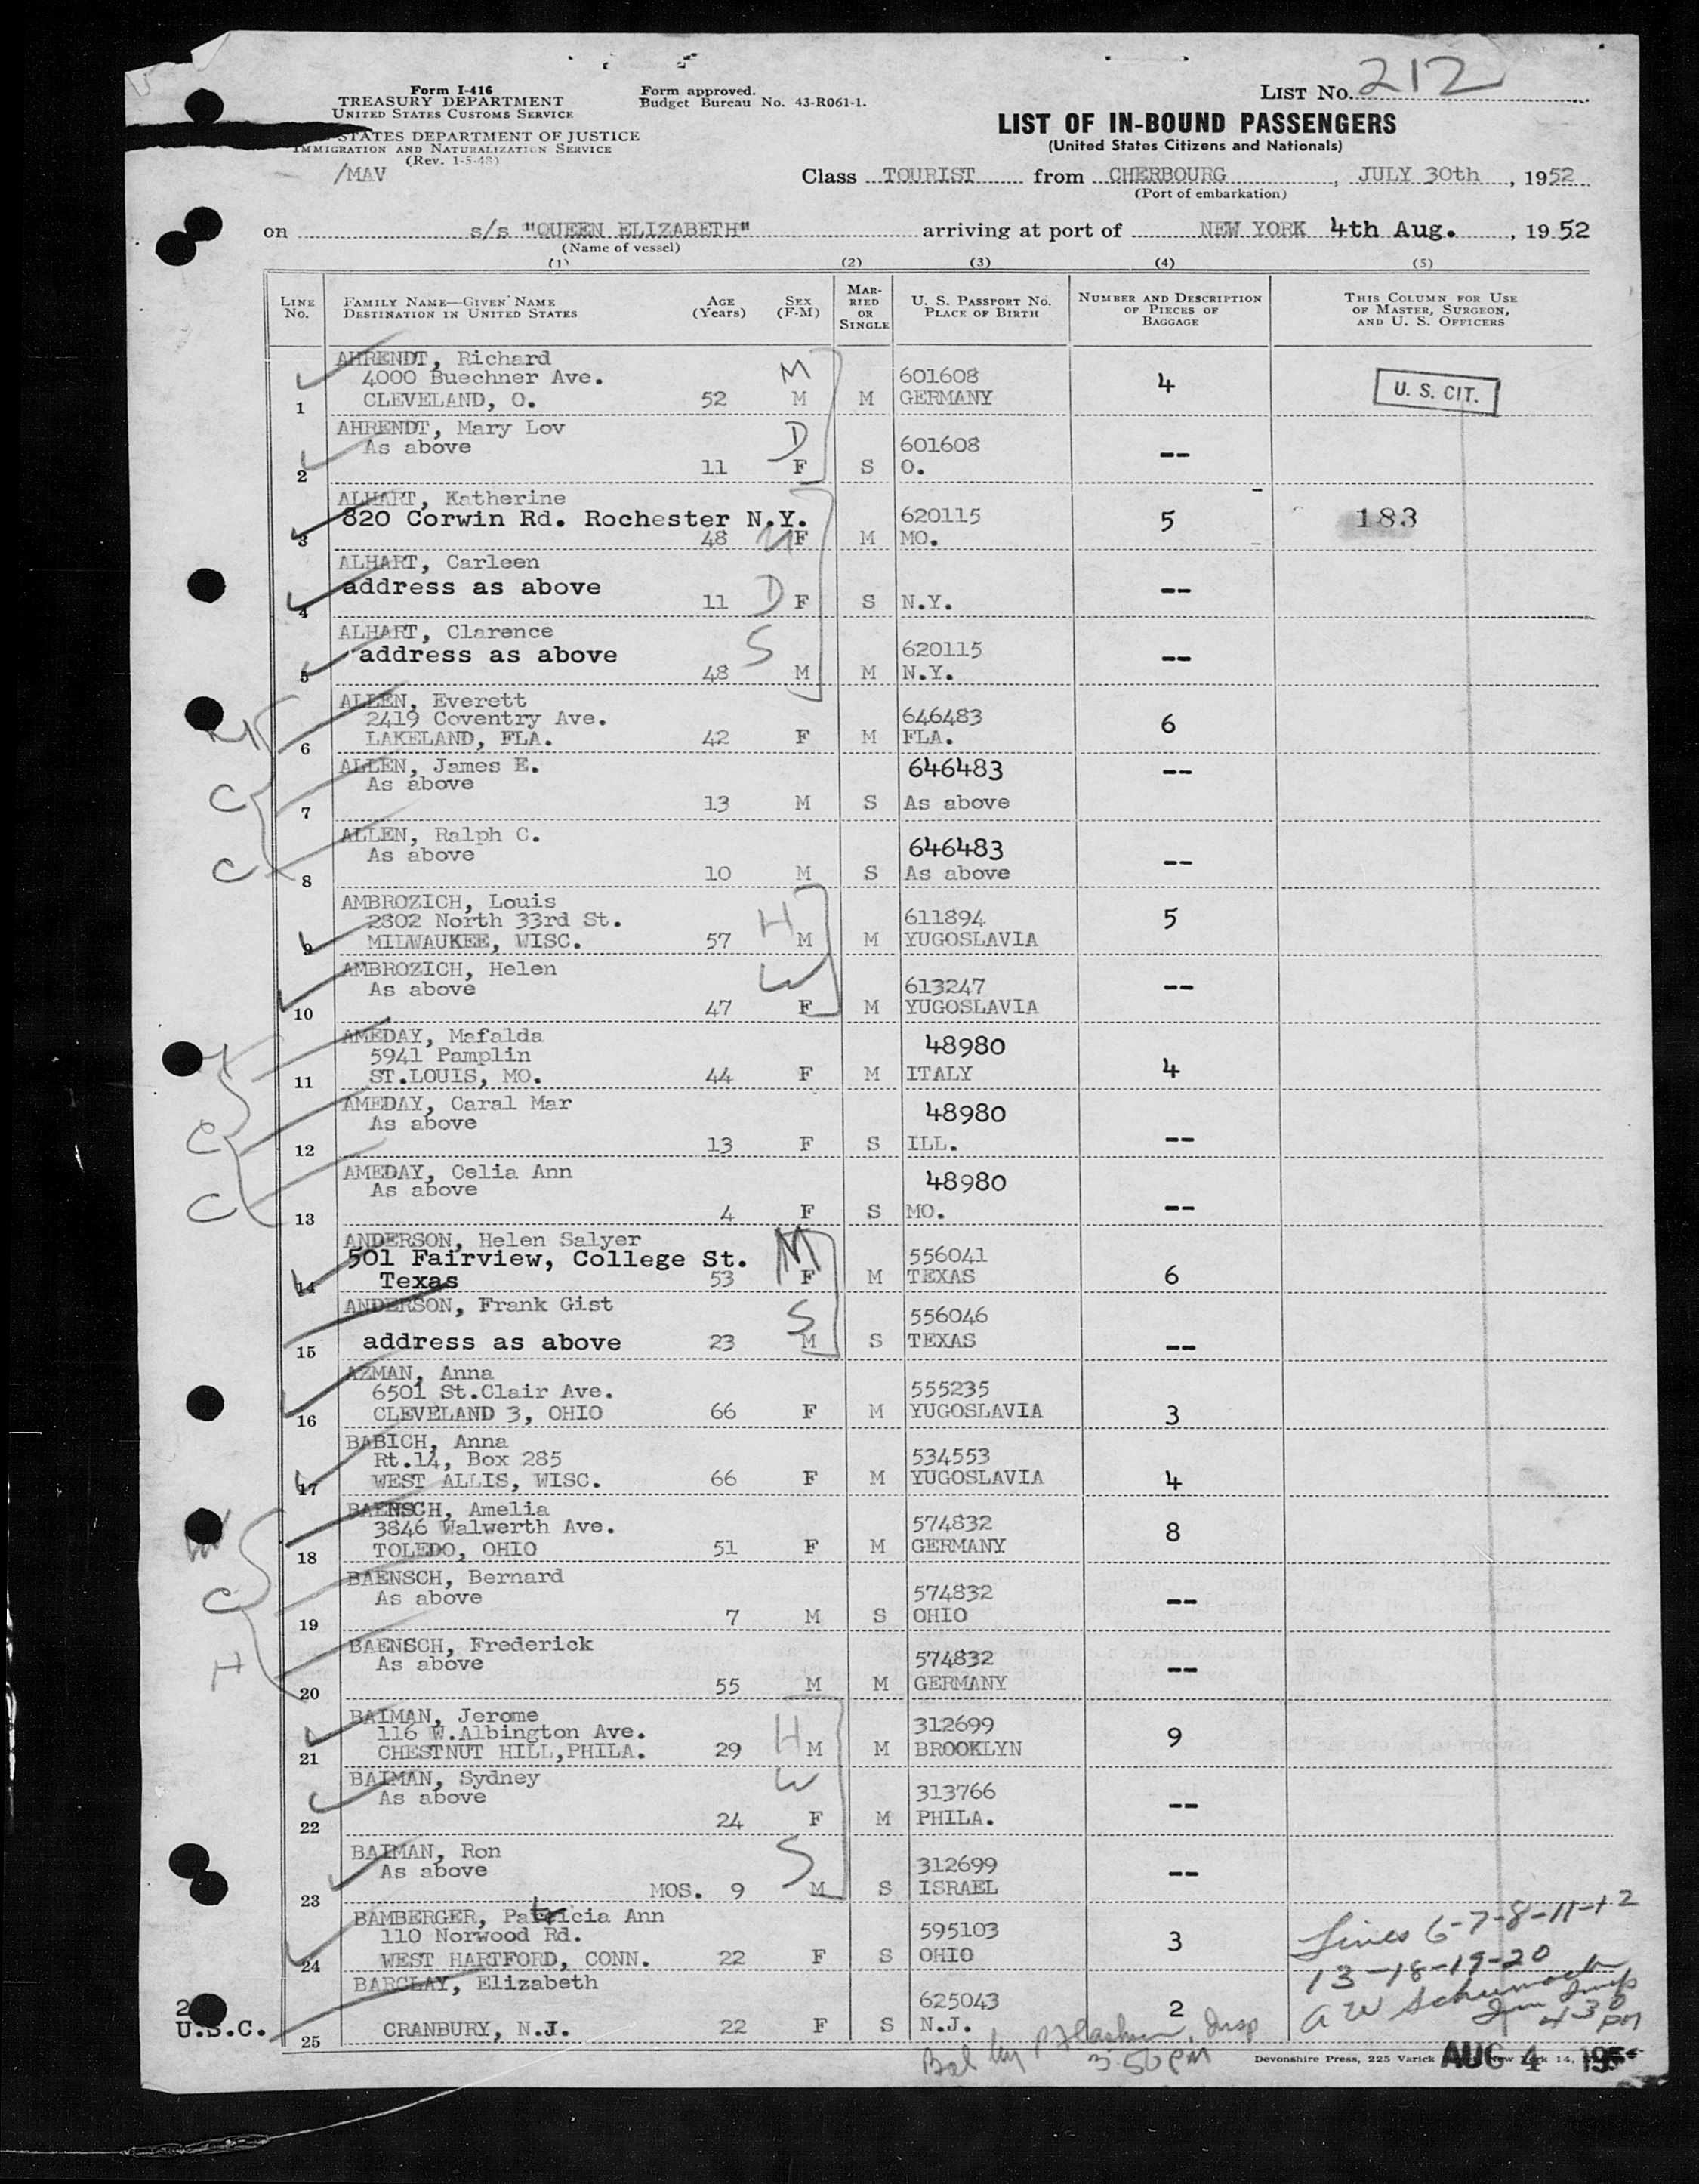 Form I-416
TREASURY DEPARTMENT
UNITED STATES CUSTOMS SERVICE
STATES DEPARTMENT OF JUSTICE
IMMIGRATION AND NATURALIZATION SERVICE
(Rev. 1-5-48)
/MAV
Form approved.
Budget Bureau No. 43-R061-1.
LIST No. 212
LIST OF IN-BOUND PASSENGERS
(United States Citizens and Nationals)
Class TOURIST from CHERBOURG, JULY 30th, 1952
(Port of embarkation)
on s/s "QUEEN ELIZABETH" arriving at port of NEW YORK 4th Aug., 1952
(Name of vessel)
(1) (2) (3) (4) (5)
LINE No. FAMILY NAME—GIVEN NAME DESTINATION IN UNITED STATES AGE (Years) SEX (F-M) MARRIED OR SINGLE U. S. PASSPORT No. PLACE OF BIRTH NUMBER AND DESCRIPTION OF PIECES OF BAGGAGE THIS COLUMN FOR USE OF MASTER, SURGEON, AND U. S. OFFICERS
AHRENDT, Richard M
4000 Buechner Ave. 601608 4 U. S. CIT.
1 CLEVELAND, O. 52 M M GERMANY
AHRENDT, Mary Lov D
As above 601608 --
2 11 F S O.
ALHART, Katherine
820 Corwin Rd. Rochester N.Y. 620115 5 183
3 48 M F M MO.
ALHART, Carleen
address as above --
4 11 D F S N.Y.
ALHART, Clarence S
address as above 620115 --
5 48 M M N.Y.
ALLEN, Everett
2419 Coventry Ave. 646483 6
6 LAKELAND, FLA. 42 F M FLA.
ALLEN, James E. 646483 --
C As above
7 13 M S As above
ALLEN, Ralph C. 646483
C As above --
8 10 M S As above
AMBROZICH, Louis H
2802 North 33rd St. 611894 5
9 MILWAUKEE, WISC. 57 M M YUGOSLAVIA
AMBROZICH, Helen W
As above 613247 --
10 47 F M YUGOSLAVIA
AMEDAY, Mafalda 48980
5941 Pamplin
11 ST.LOUIS, MO. 44 F M ITALY 4
AMEDAY, Caral Mar 48980
C As above
12 13 F S ILL. --
AMEDAY, Celia Ann 48980
C As above
13 4 F S MO. --
ANDERSON, Helen Salyer M
501 Fairview, College St. 556041
14 Texas 53 F M TEXAS 6
ANDERSON, Frank Gist S 556046
15 address as above 23 M S TEXAS --
AZMAN, Anna
6501 St.Clair Ave. 555235
16 CLEVELAND 3, OHIO 66 F M YUGOSLAVIA 3
BABICH, Anna
Rt.14, Box 285 534553
17 WEST ALLIS, WISC. 66 F M YUGOSLAVIA 4
BAENSCH, Amelia
3846 Walwerth Ave. 574832 8
18 TOLEDO, OHIO 51 F M GERMANY
BAENSCH, Bernard
C As above 574832 --
19 7 M S OHIO
BAENSCH, Frederick
H As above 574832 --
20 55 M M GERMANY
BAIMAN, Jerome H
116 W.Albington Ave. 312699 9
21 CHESTNUT HILL,PHILA. 29 M M BROOKLYN
BAIMAN, Sydney W
As above 313766 --
22 24 F M PHILA.
BAIMAN, Ron S
As above 312699 --
23 MOS. 9 M S ISRAEL
BAMBERGER, Patricia Ann
110 Norwood Rd. 595103 3
24 WEST HARTFORD, CONN. 22 F S OHIO
Lines 6-7-8-11-12
13-18-19-20
BARCLAY, Elizabeth
625043 2
25 CRANBURY, N.J. 22 F S N.J.
A W Schumach
Imm Insp
430 pm
U.S.C.
Bal by Insp
3 50 PM
Devonshire Press, 225 Varick
AUG 4